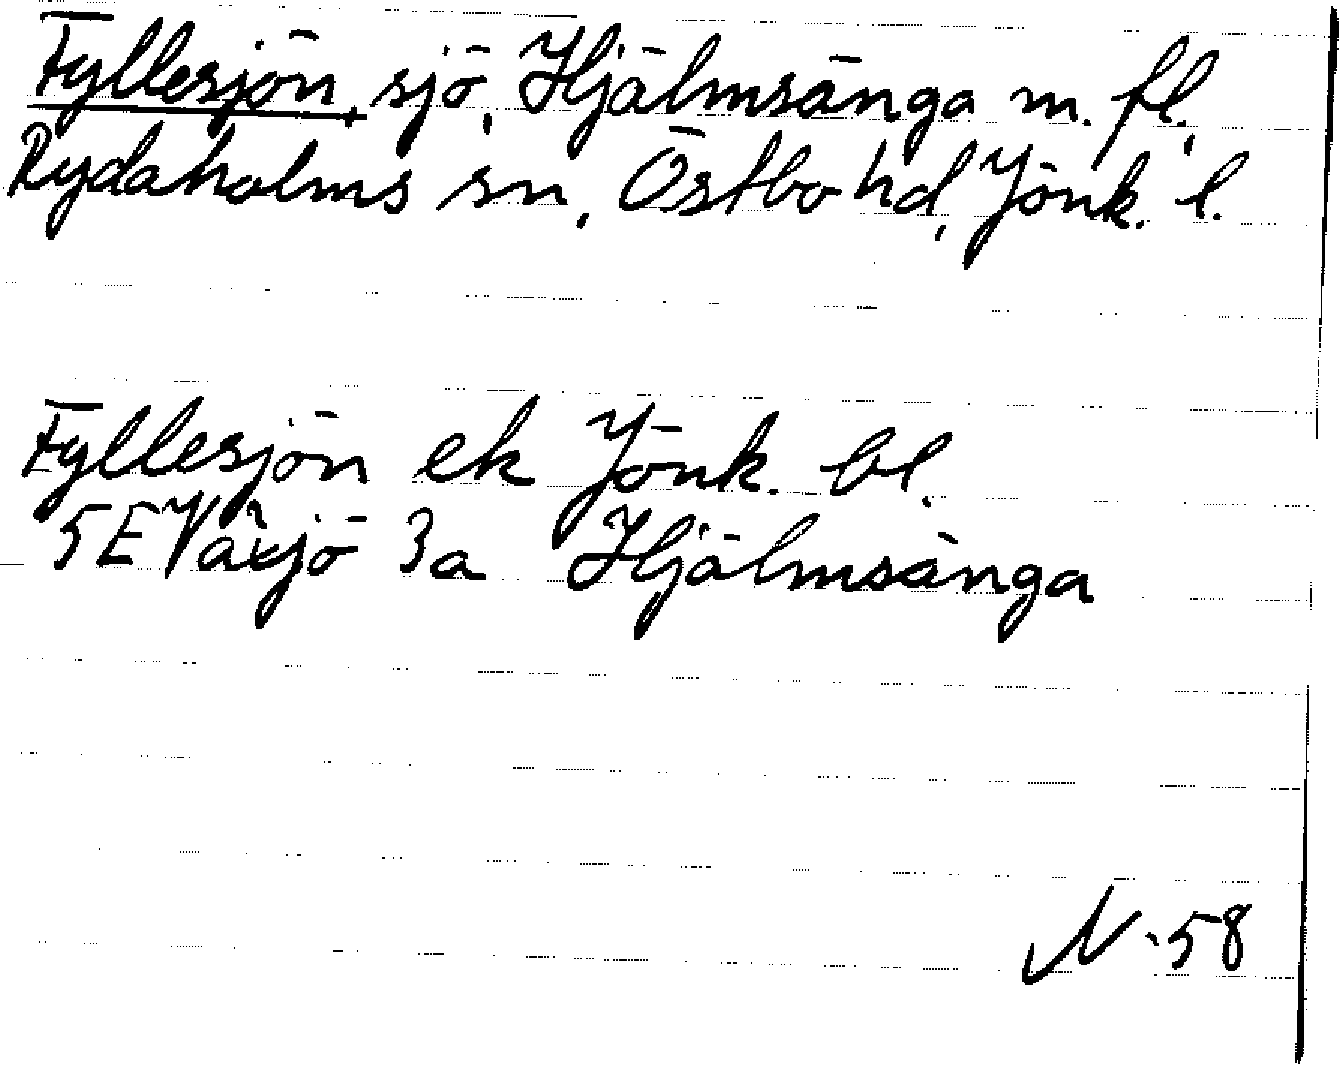 Fyllesjön, sjö, Hjälmsänga m. fl.,
Rydaholms sn, Östbo hd, Jönk. l.
Fyllesjön ek Jönk. bl.
5E Växjö 3a Hjälmsänga
N-58